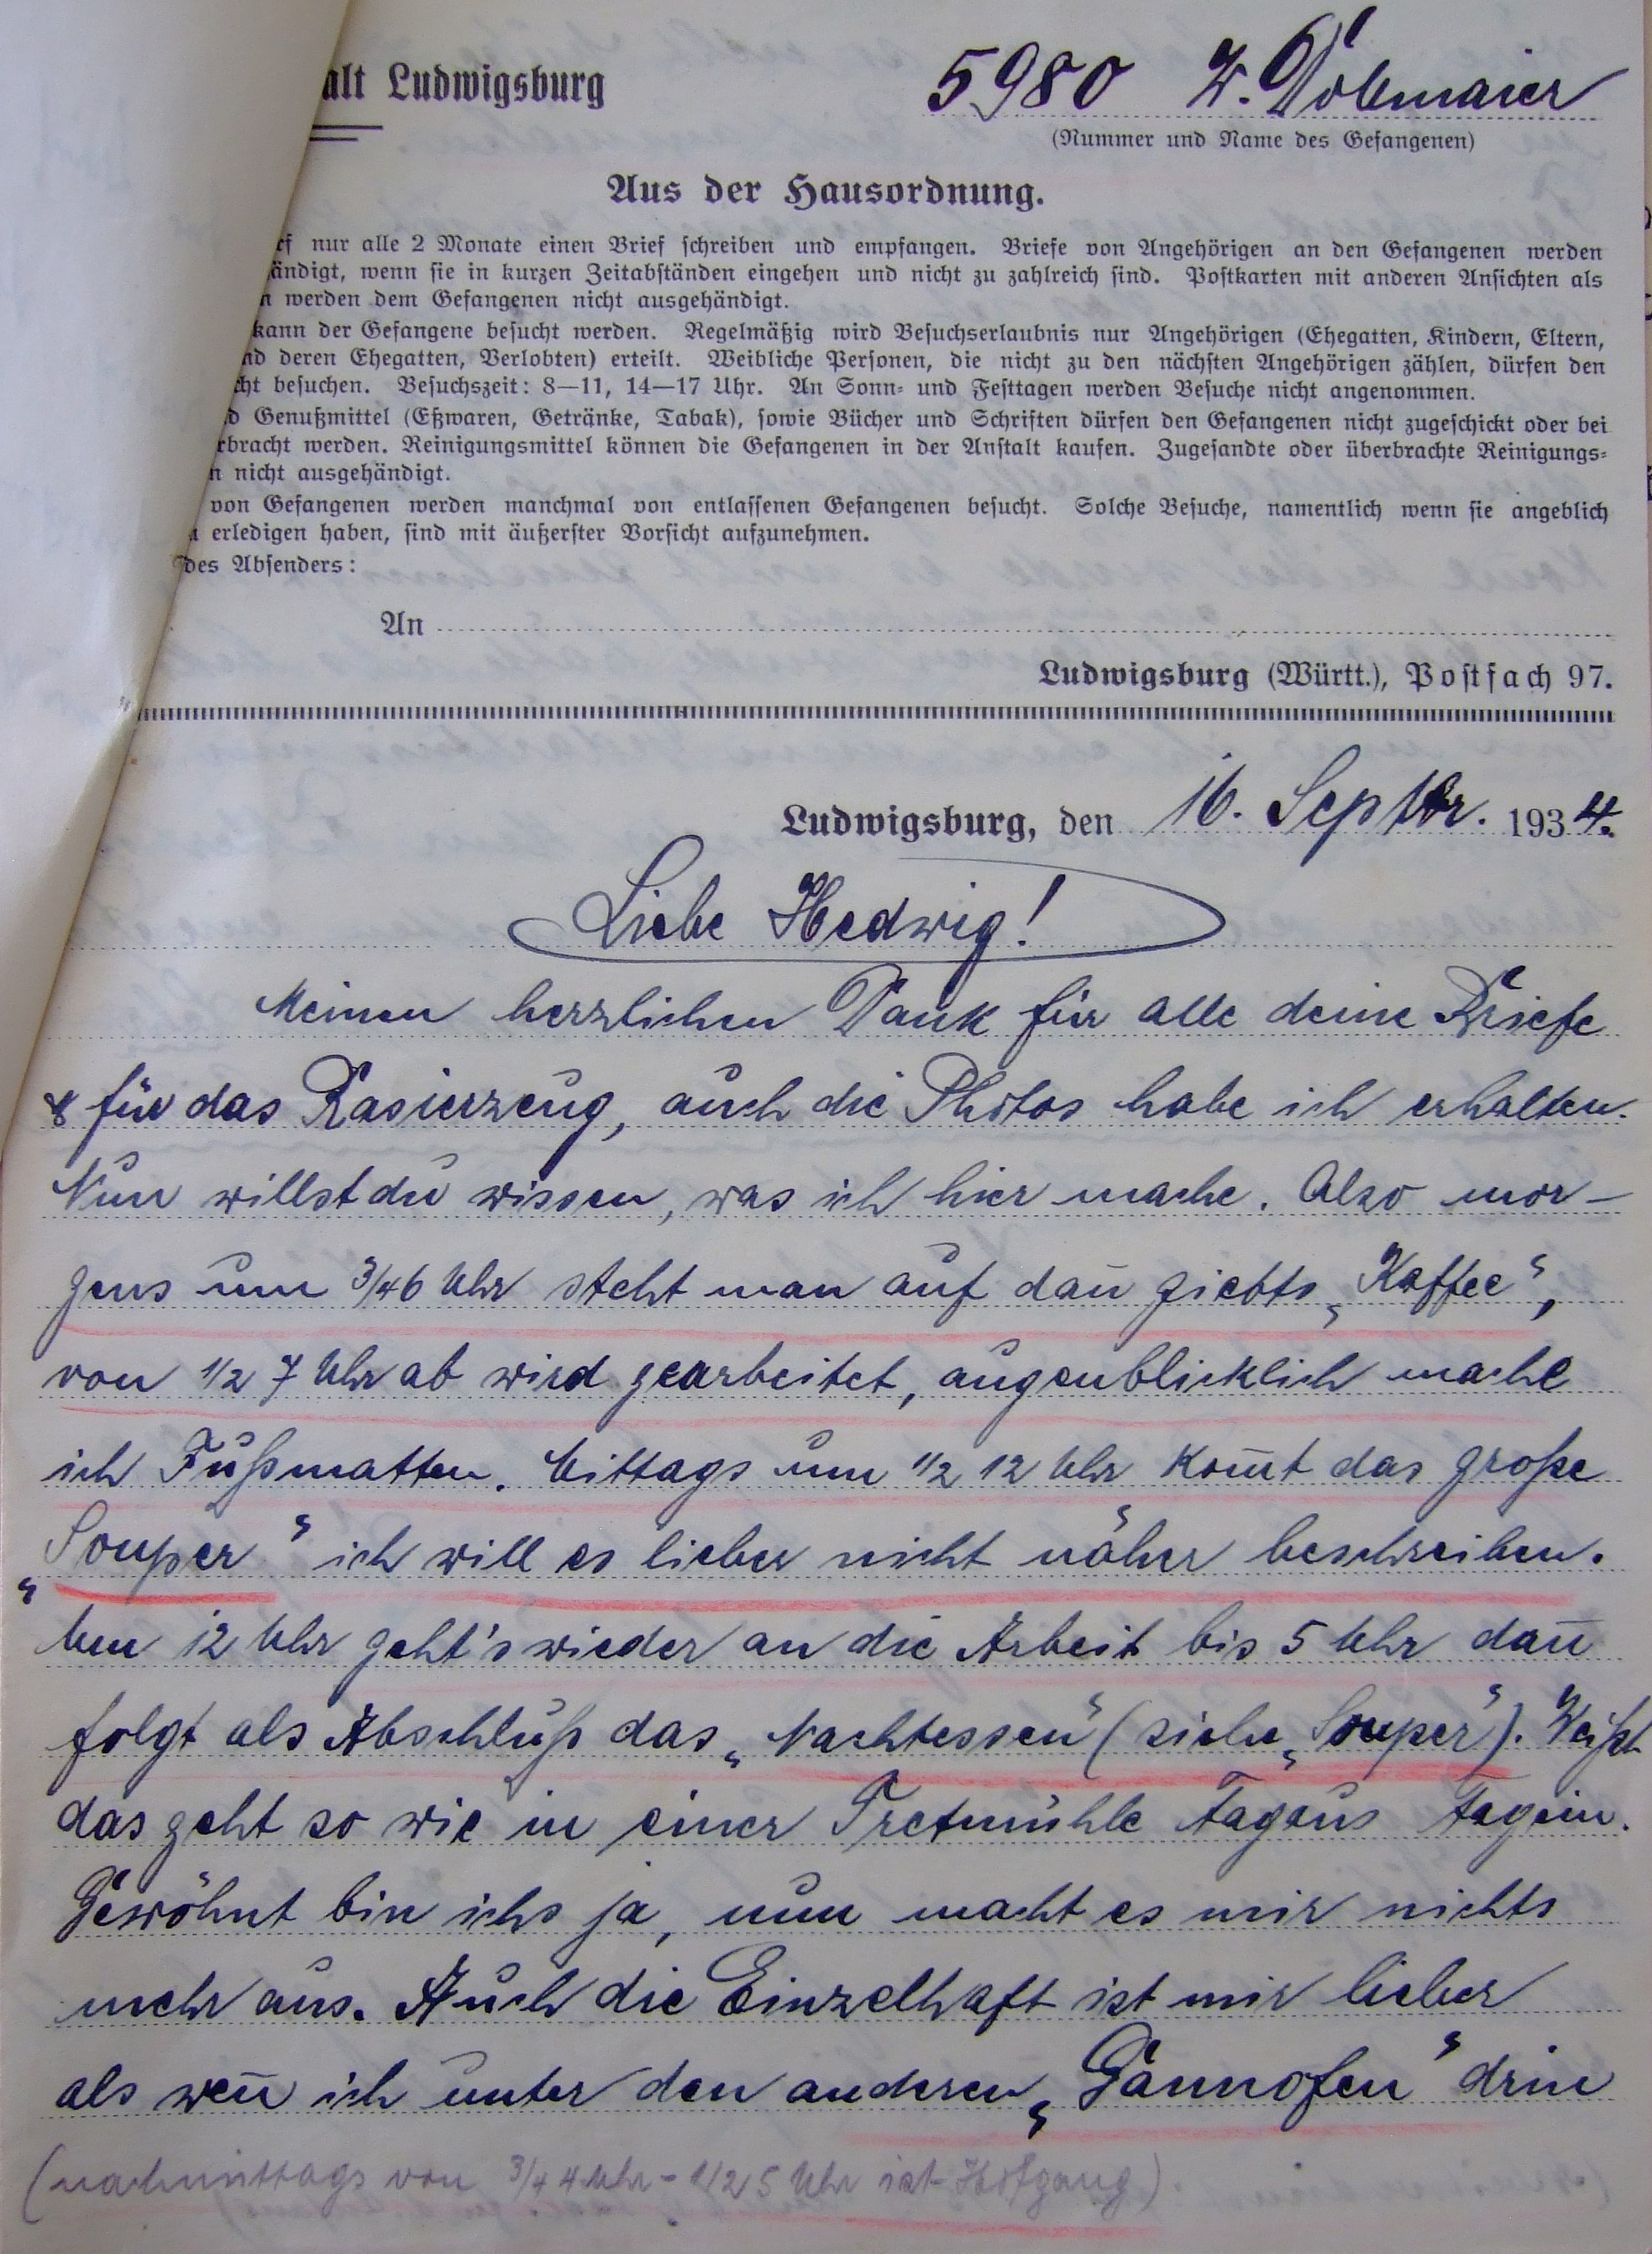 alt Ludwigsburg
5980 W. Dobmaier
(Nummer und Name des Gefangenen)
Aus der Hausordnung.
rf nur alle 2 Monate einen Brief schreiben und empfangen. Briefe von Angehörigen an den Gefangenen werden
ändigt, wenn sie in kurzen Zeitabständen eingehen und nicht zu zahlreich sind. Postkarten mit anderen Ansichten als
n werden dem Gefangenen nicht ausgehändigt.
kann der Gefangene besucht werden. Regelmäßig wird Besuchserlaubnis nur Angehörigen (Ehegatten, Kindern, Eltern,
nd deren Ehegatten, Verlobten) erteilt. Weibliche Personen, die nicht zu den nächsten Angehörigen zählen, dürfen den
cht besuchen. Besuchszeit: 8—11, 14—17 Uhr. An Sonn- und Festtagen werden Besuche nicht angenommen.
d Genußmittel (Eßwaren, Getränke, Tabak), sowie Bücher und Schriften dürfen den Gefangenen nicht zugeschickt oder bei
rbracht werden. Reinigungsmittel können die Gefangenen in der Anstalt kaufen. Zugesandte oder überbrachte Reinigungs-
n nicht ausgehändigt.
von Gefangenen werden manchmal von entlassenen Gefangenen besucht. Solche Besuche, namentlich wenn sie angeblich
erledigen haben, sind mit äußerster Vorsicht aufzunehmen.
des Absenders:
An
Ludwigsburg (Württ.), Postfach 97.
Ludwigsburg, den 16. Septbr. 1934.
Liebe Hedwig!
Meinen herzlichen Dank für alle deine Briefe
& für das Rasierzeug, auch die Photos habe ich erhalten.
Nun willst du wissen, was ich hier mache. Also mor-
gens um 3/4 6 Uhr steht man auf dan̄ giebts „Kaffee",
von 1/2 7 Uhr ab wird gearbeitet, augenblicklich mache
ich Fußmatten. Mittags um 1/2 12 Uhr kom̄t das große
„Souper" ich will es lieber nicht näher beschreiben.
Um 12 Uhr geht's wieder an die Arbeit bis 5 Uhr dan̄
folgt als Abschluß das „Nachtessen" (siehe „Souper"). Weißt
das geht so wie in einer Tretmühle Tagaus Tagein.
Gewöhnt bin ichs ja, nun macht es mir nichts
mehr aus. Auch die Einzelhaft ist mir lieber
als wen̄ ich unter den anderen „Gannofen" drin
(nachmittags von 3/4 4 Uhr - 1/2 5 Uhr ist Hofgang).